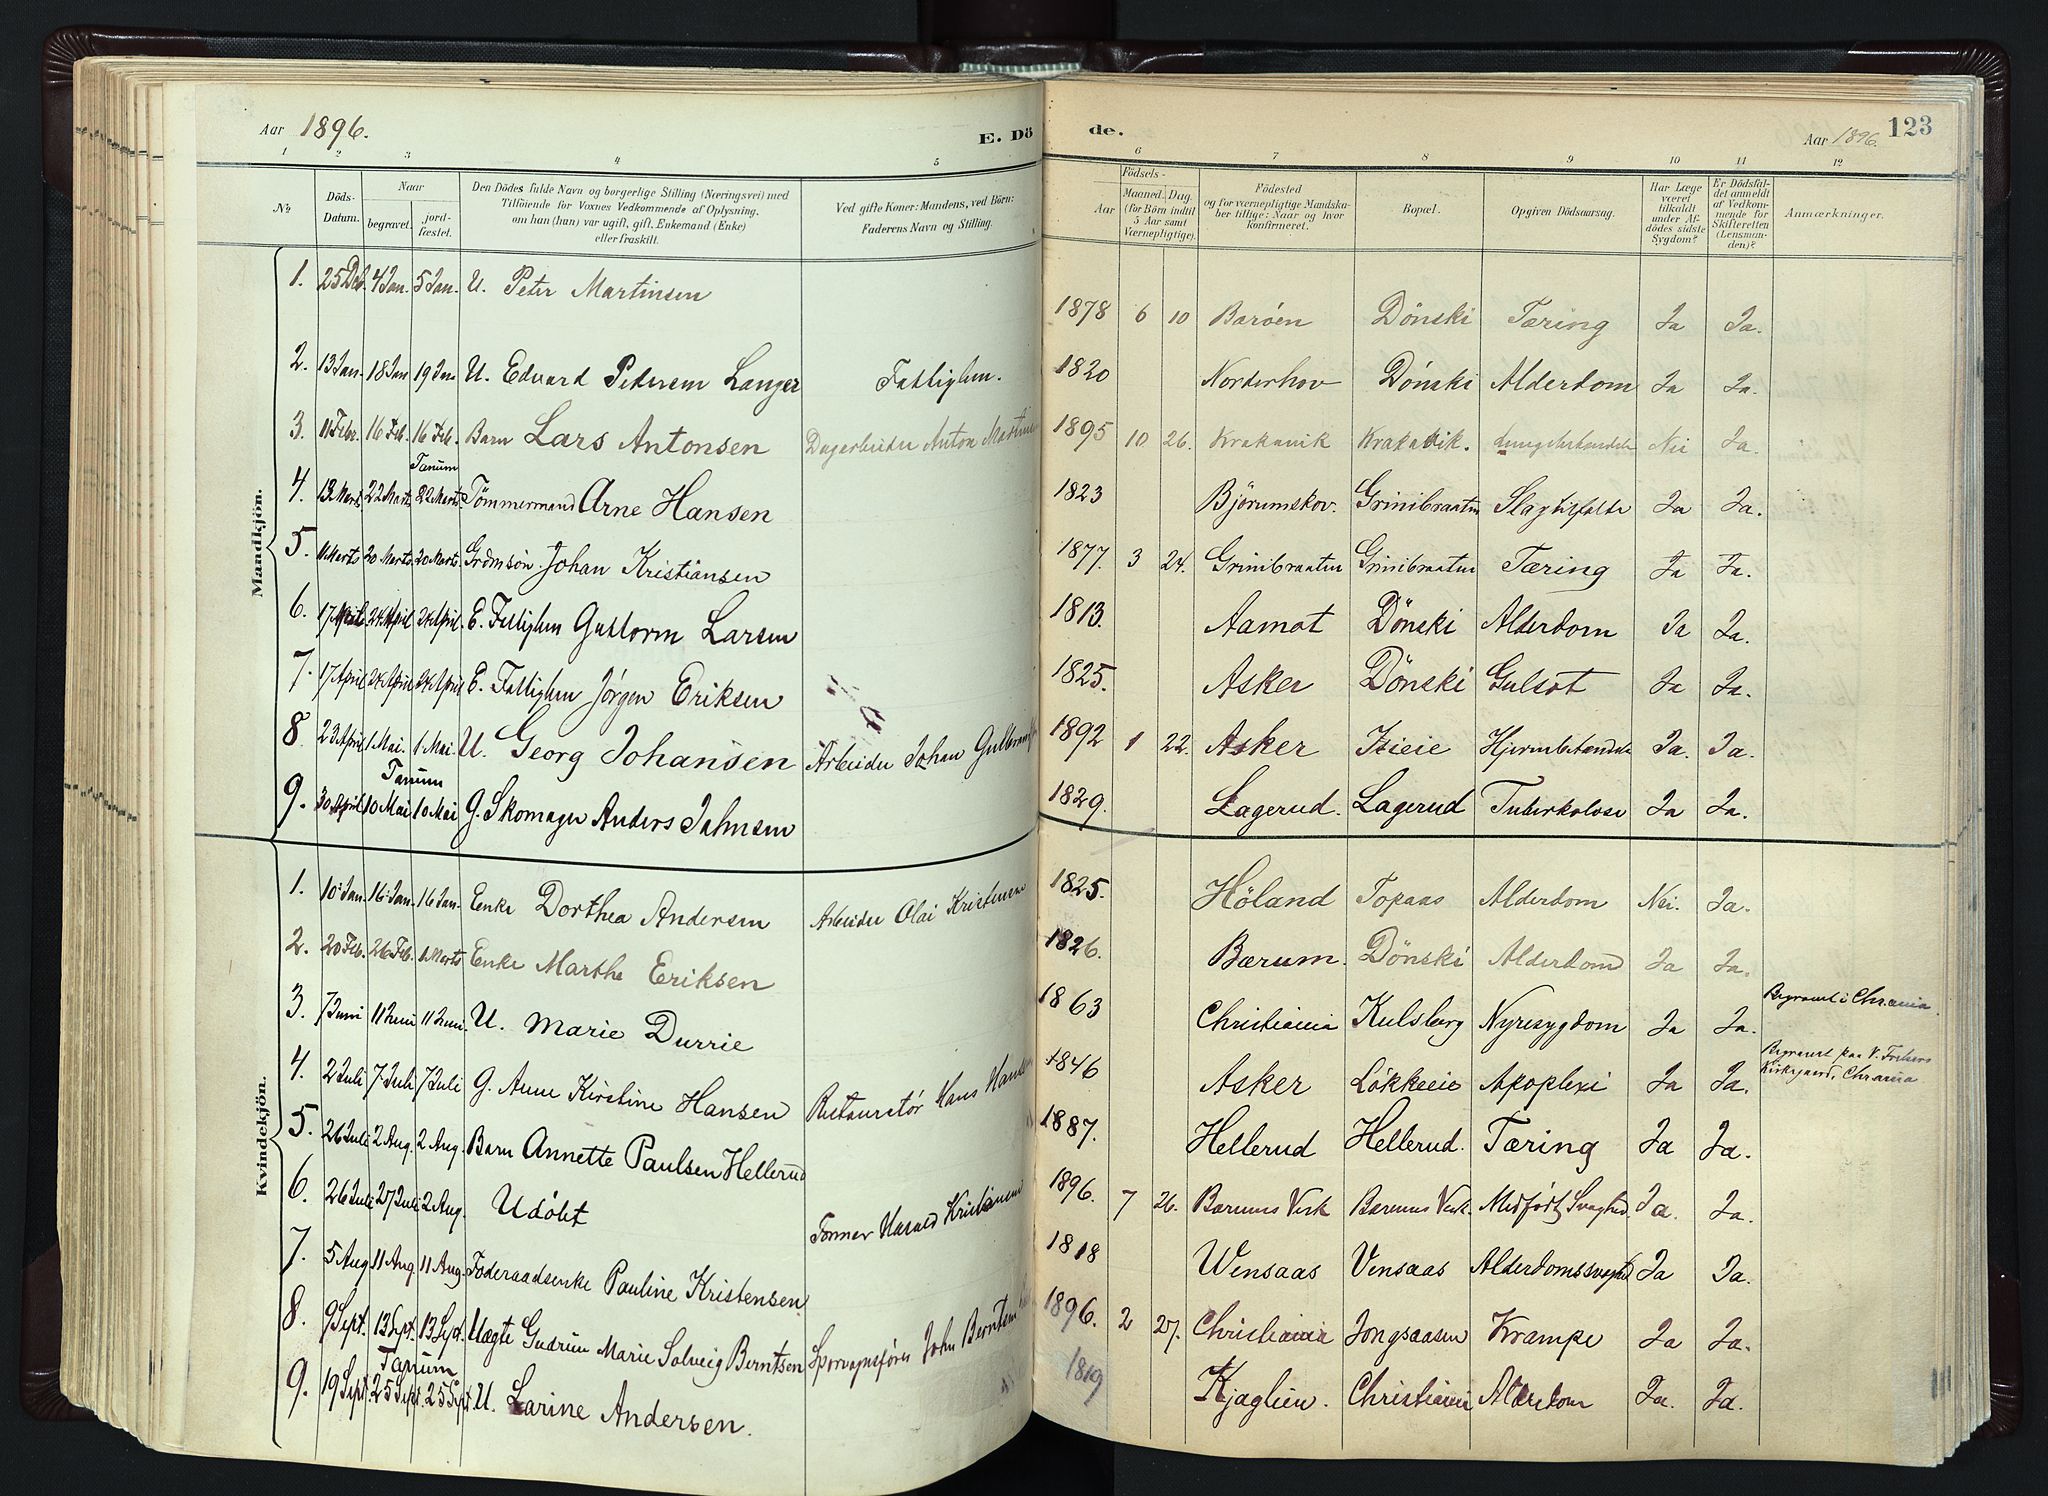 Aar 1896. E. Dö
de. Aar 1896. 123
1 2 3 4 5 6 7 8 9 10 11 12
№ Döds-Datum. Naar begravet. jord-fæstet. Den Dödes fulde Navn og borgerlige Stilling (Næringsvei) med Tilföiende for Voxnes Vedkommende af Oplysning, om han (hun) var ugift, gift, Enkemand (Enke) eller fraskilt. Ved gifte Koner: Mandens, ved Börn: Faderens Navn og Stilling. Födsels- Aar Maaned. Dag. (for Börn indtil 5 Aar samt Værnepligtige). Födested og for værnepligtige Mandska-ber tillige: Naar og hvor konfirmeret. Bopæl. Opgiven Dödsaarsag. Har Læge været tilkaldt under Af-dödes sidste Sygdom? Er Dödsfal-det anmeldt af Vedkom-mende for Skifteretten (Lensman-den)? Anmærkninger.
Mandkjön.
1. 25 Dec. 4 Jan. 5 Jan. U. Peter Martinsen 1878 6 10 Barøen Dönski Tæring Ja Ja.
2. 13 Jan. 18 Jan 19 Jan U. Edvard Pedersen Langer Fattiglem. 1820 Norderhov Dönski Alderdom Ja Ja.
3. 11 Febr. 16 Feb. 16 Feb. Barn Lars Antonsen Dagarbeider Anton 1895 10 26. Krakavik Krakavik. Nei Ja.
Tanum
4. 13 Marts 22 Marts 22 Marts Tömmermand Arne Hansen 1823 Bjørumskov. Grinibraaten Slagtilfælde Ja Ja.
5. 11 Marts 20 Marts 20 Marts. Grdmsön. Johan Kristiansen 1877. 3 24. Grinibraaten Grinibraaten Tæring Ja Ja.
6. 17 April 24 April 24 April. E. Fattiglem Guttorm Larsen 1813. Aamot Dönski Alderdom Ja Ja.
7. 17 April 24 April 24 April E. Fattiglem Jørgen Eriksen 1825. Asker Dönski Gulsot Ja Ja.
8. 23 April 1 Mai. 1 Mai. U. Georg Johansen Arbeider Johan 1892 1 22. Asker Hjernebetændelse Ja. Ja.
Tanum
9. 30 April 10 Mai 10 Mai G. Skomager Anders Jahnsen 1829. Lagerud. Lagerud Tuberkolose Ja Ja.
Kvindekjön.
1. 10 Jan. 16 Jan. 16 Jan. Enke Dorthea Andersen Arbeider Olai Kristensen 1825. Höland Topaas Alderdom Nei. Ja.
2. 20 Feb. 26 Feb. 1 Marts Enke Marthe Eriksen 1826. Bærum. Dönski Alderdom Ja Ja.
3. 7 Juni 11 Juni 11 Juni. U. Marie Durrie 1863 Christiania Kulsberg Nyresygdom Ja Ja. Begravet i Chrania.
4. 2 Juli 7 Juli 7 Juli G. Anne Kirstine Hansen Restauratør Hans Hansen 1846 Asker Løkkeeie Apoplexi Ja Ja. Begravet paa V. Frelsers Kirkegaard, Chrania
5. 26 Juli 2 Aug. 2 Aug. Barn Annette Paulsen Hellerud 1887. Hellerud Hellerud. Tæring Ja Ja.
6. 26 Juli 27 Juli 2 Aug. Udöbt Former Harald Kristiansen 1896. 7 26. Bærums Verk Bærums Verk. Medfødt Svaghed. Ja. Ja.
7. 5 Aug 11 Aug. 11 Aug. Föderaadsenke Pauline Kristensen 1818 Wensaas Vensaas Alderdomssvaghed Ja Ja.
8. 9 Sept. 13 Sept. 13 Sept. Uægte Gudrun Marie Solveig Berntsen Sporvognsfører John Berntsen 1896. 2 27. Christiania Jongsaasen Krampe Ja Ja.
Tanum
9. 19 Sept. 25 Sept. 25 Sept. U. Larine Andersen. 1819 Kjaglien. Christiania Alderdom Ja. Ja.